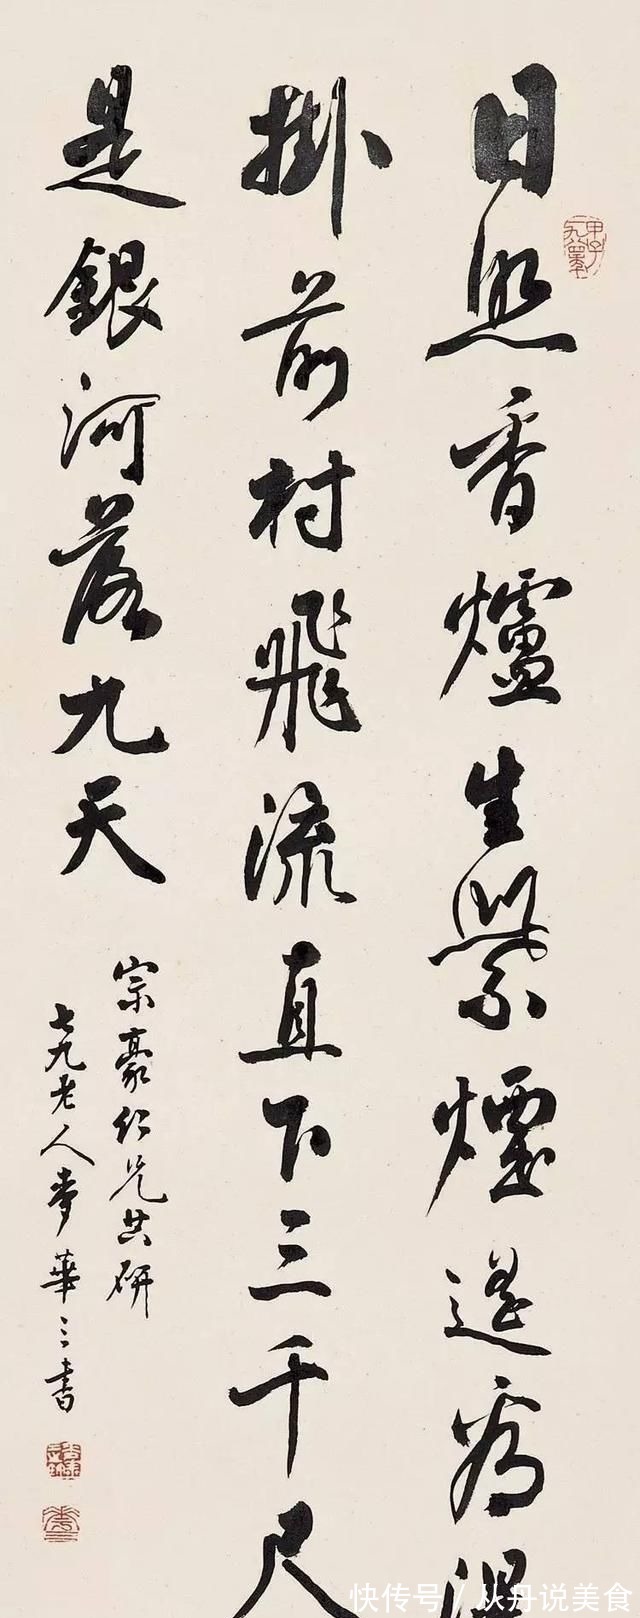 日照香爐生紫煙遙看
掛前村飛流直下三千尺
是銀河落九天
宗豪仁兄共研
七九老人麥華三書
快传号/从丹说美食